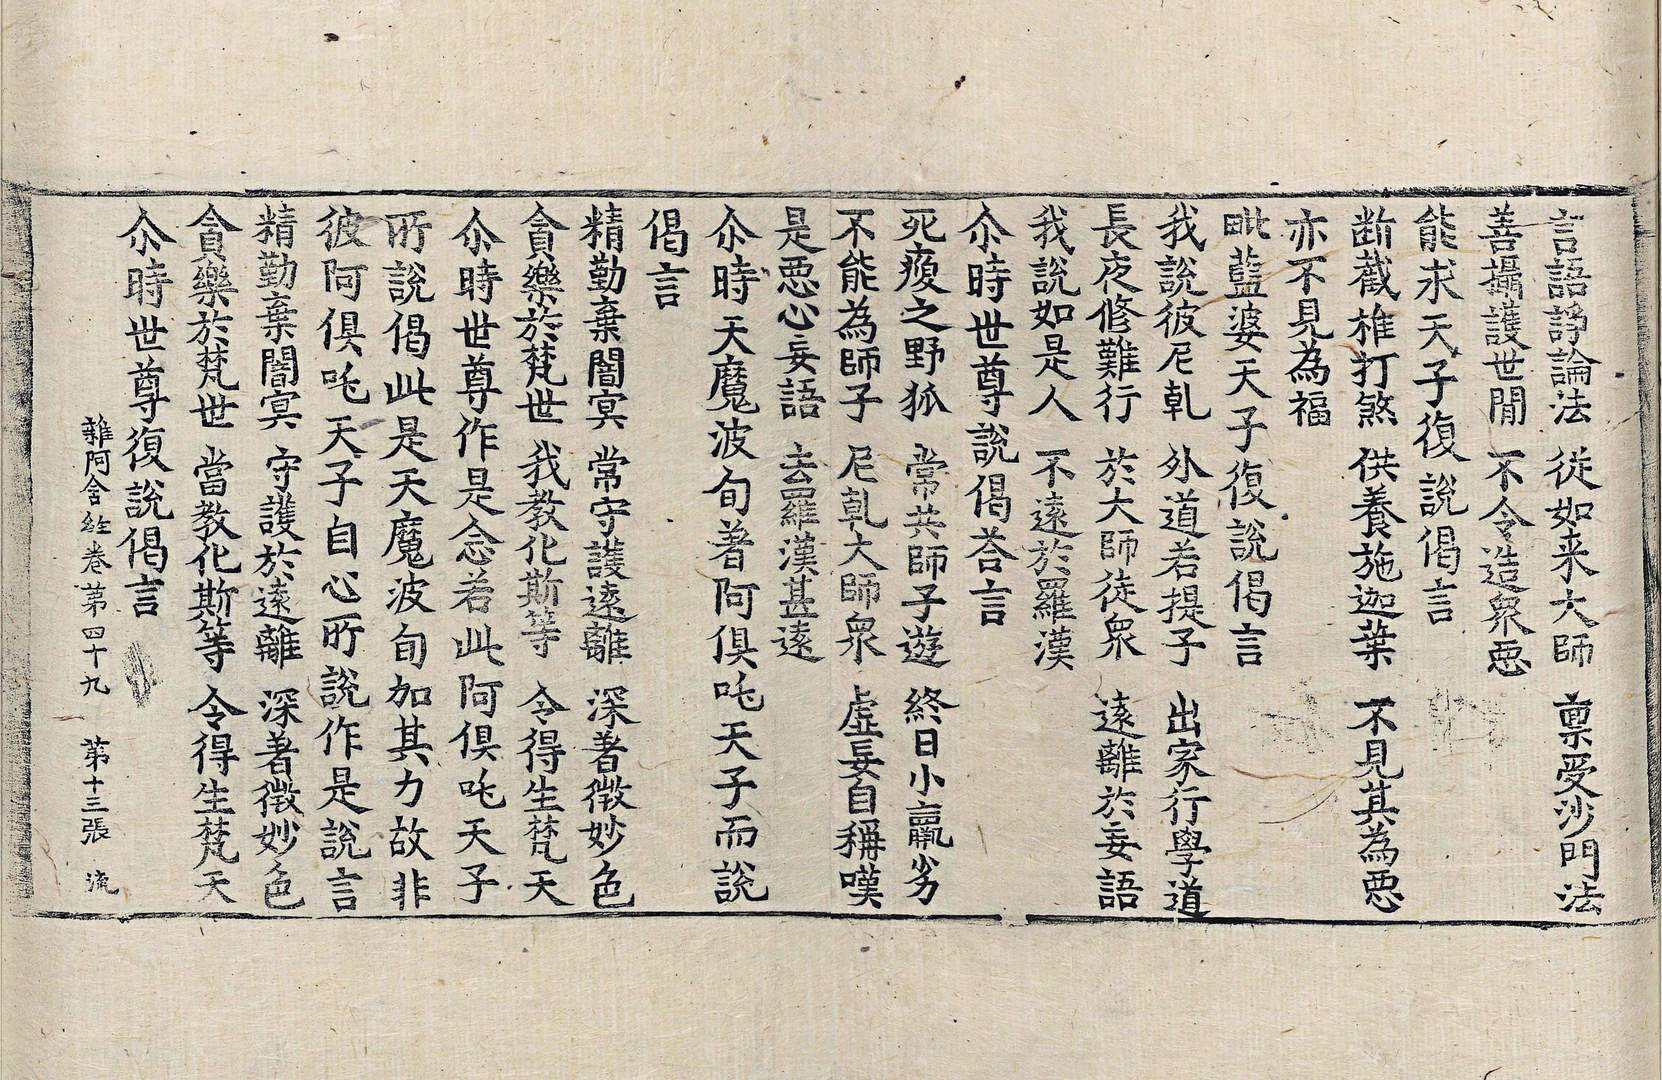 言語諍論法 從如来大師 禀受沙門法
善攝護世閒 不令造衆惡
能求天子復說偈言
断截椎打煞 供養施迦葉 不見其為惡
亦不見為福
毗藍婆天子復說偈言
我說彼尼乹 外道若提子 出家行學道
長夜修難行 於大師徒衆 遠離於妄語
我說如是人 不遠於羅漢
尒時世尊說偈荅言
死瘦之野狐 常共師子遊 終日小羸劣
不能為師子 尼乹大師衆 虛妄自稱嘆
是惡心妄語 去羅漢甚遠
尒時天魔波旬著阿俱吒天子而說
偈言
精勤棄闇冥 常守護遠離 深著微妙色
貪樂於梵世 我教化斯等 令得生梵天
尒時世尊作是念若此阿俱吒天子
所說偈此是天魔波旬加其力故非
彼阿俱吒天子自心所說作是說言
精勤棄闇冥 守護於遠離 深著微妙色
貪樂於梵世 當教化斯等 令得生梵天
尒時世尊復說偈言
雜阿含経卷第四十九 第十三張 流